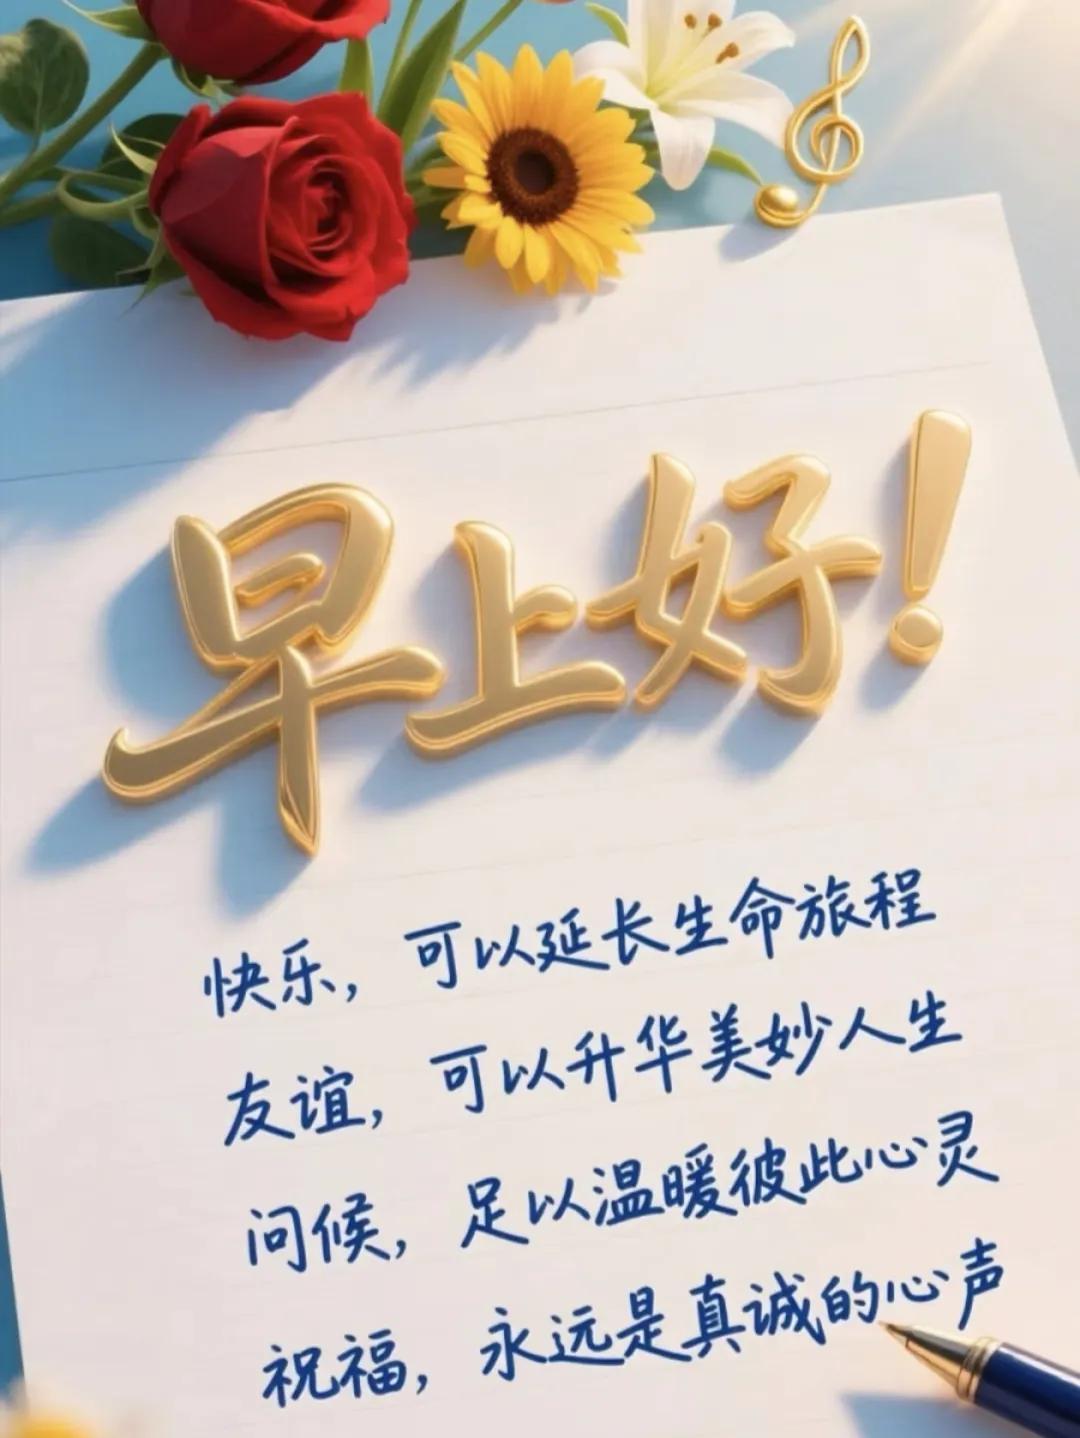 早上好!
快乐，可以延长生命旅程
友谊，可以升华美妙人生
问候，足以温暖彼此心灵
祝福，永远是真诚的心声